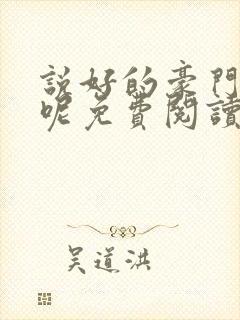 説好的豪門
呢免費閱讀
吴道洪